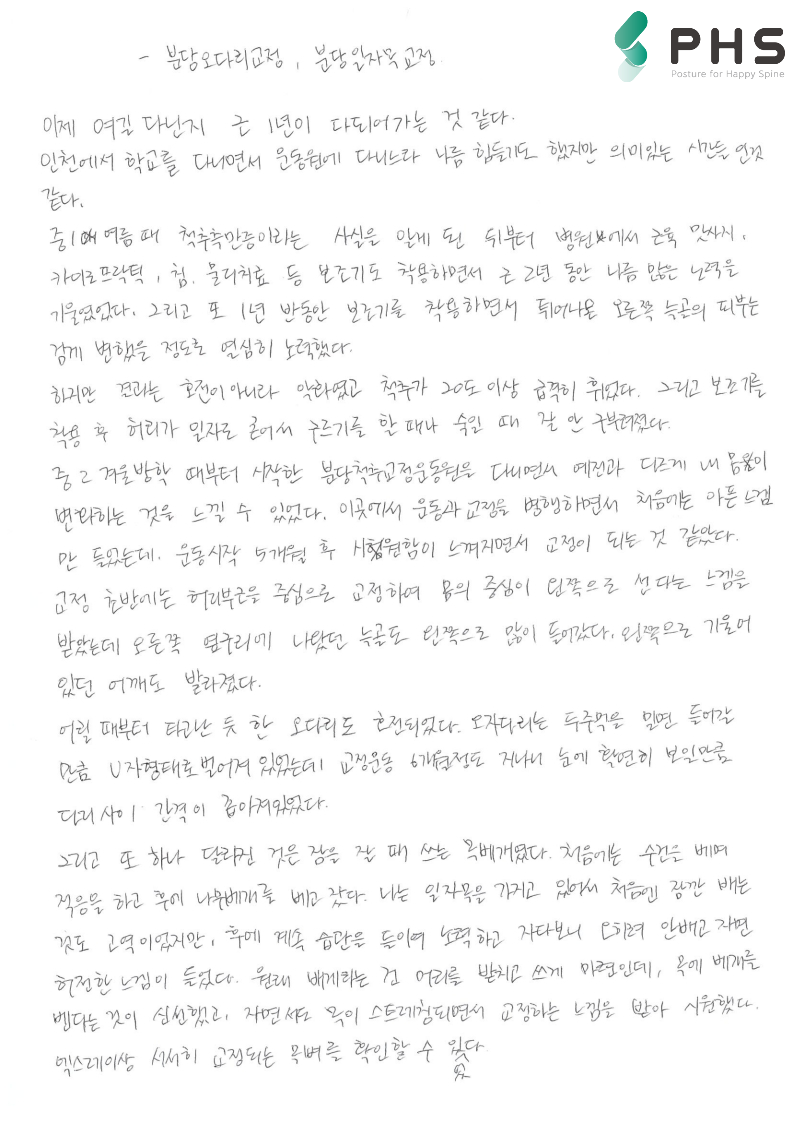 PHS
Posture for Happy Spine
- 분당오다리교정, 분당일자목교정
이제 여길 다닌지 근 1년이 다되어가는 것 같다.
인천에서 학교를 다니면서 운동원에 다니느라 나름 힘들기도 했지만 의미있는 시간들 인것
같다.
중1 여름 때 척추측만증이라는 사실을 알게 된 뒤부터 병원에서 근육 맛사지,
카이로프락틱, 침, 물리치료 등 보조기도 착용하면서 근 2년 동안 나름 많은 노력을
기울였었다. 그리고 또 1년 반동안 보조기를 착용하면서 튀어나온 오른쪽 늑골의 피부는
검게 변했을 정도로 열심히 노력했다.
하지만 결과는 호전이아니라 악화였고 척추가 20도 이상 급격히 휘었다. 그리고 보조기를
착용 후 허리가 일자로 굳어서 구르기를 할 때나 숙일 때 잘 안 구부려졌다.
중2 겨울방학 때부터 시작한 분당척추교정운동원을 다니면서 예전과 다르게 내 몸이
변화하는 것을 느낄 수 있었다. 이곳에서 운동과 교정을 병행하면서 처음에는 아픈 느낌
만 들었는데, 운동시작 5개월 후 시원함이 느껴지면서 교정이 되는 것 같았다.
교정 초반에는 허리부근을 중심으로 교정하여 몸의 중심이 왼쪽으로 선다는 느낌을
받았는데 오른쪽 옆구리에 나왔던 늑골도 왼쪽으로 많이 들어갔다. 왼쪽으로 기울어
있던 어깨도 발라졌다.
어릴 때부터 타고난 듯 한 오다리도 호전되었다. 오자다리는 두주먹을 밀면 들어갈
만큼 U자형태로벌어져 있었는데 교정운동 6개월정도 지나니 눈에 확연히 보일만큼
다리사이 간격이 좁아져있었다.
그리고 또 하나 달라진 것은 잠을 잘 때 쓰는 목베개였다. 처음에는 수건을 베며
적응을 하고 후에 나무베개를 베고 잤다. 나는 일자목을 가지고 있어서 처음엔 잠깐 베는
것도 고역이었지만, 후에 계속 습관을 들이며 노력하고 자다보니 오히려 안배고 자면
허전한 느낌이 들었다. 원래 배게라는 건 머리를 받치고 쓰게 마련인데, 목에 베개를
벤다는 것이 신선했고, 자면서도 목이 스트레칭되면서 교정하는 느낌을 받아 시원했다.
엑스레이상 서서히 교정되는 목뼈를 확인할 수 있었다.